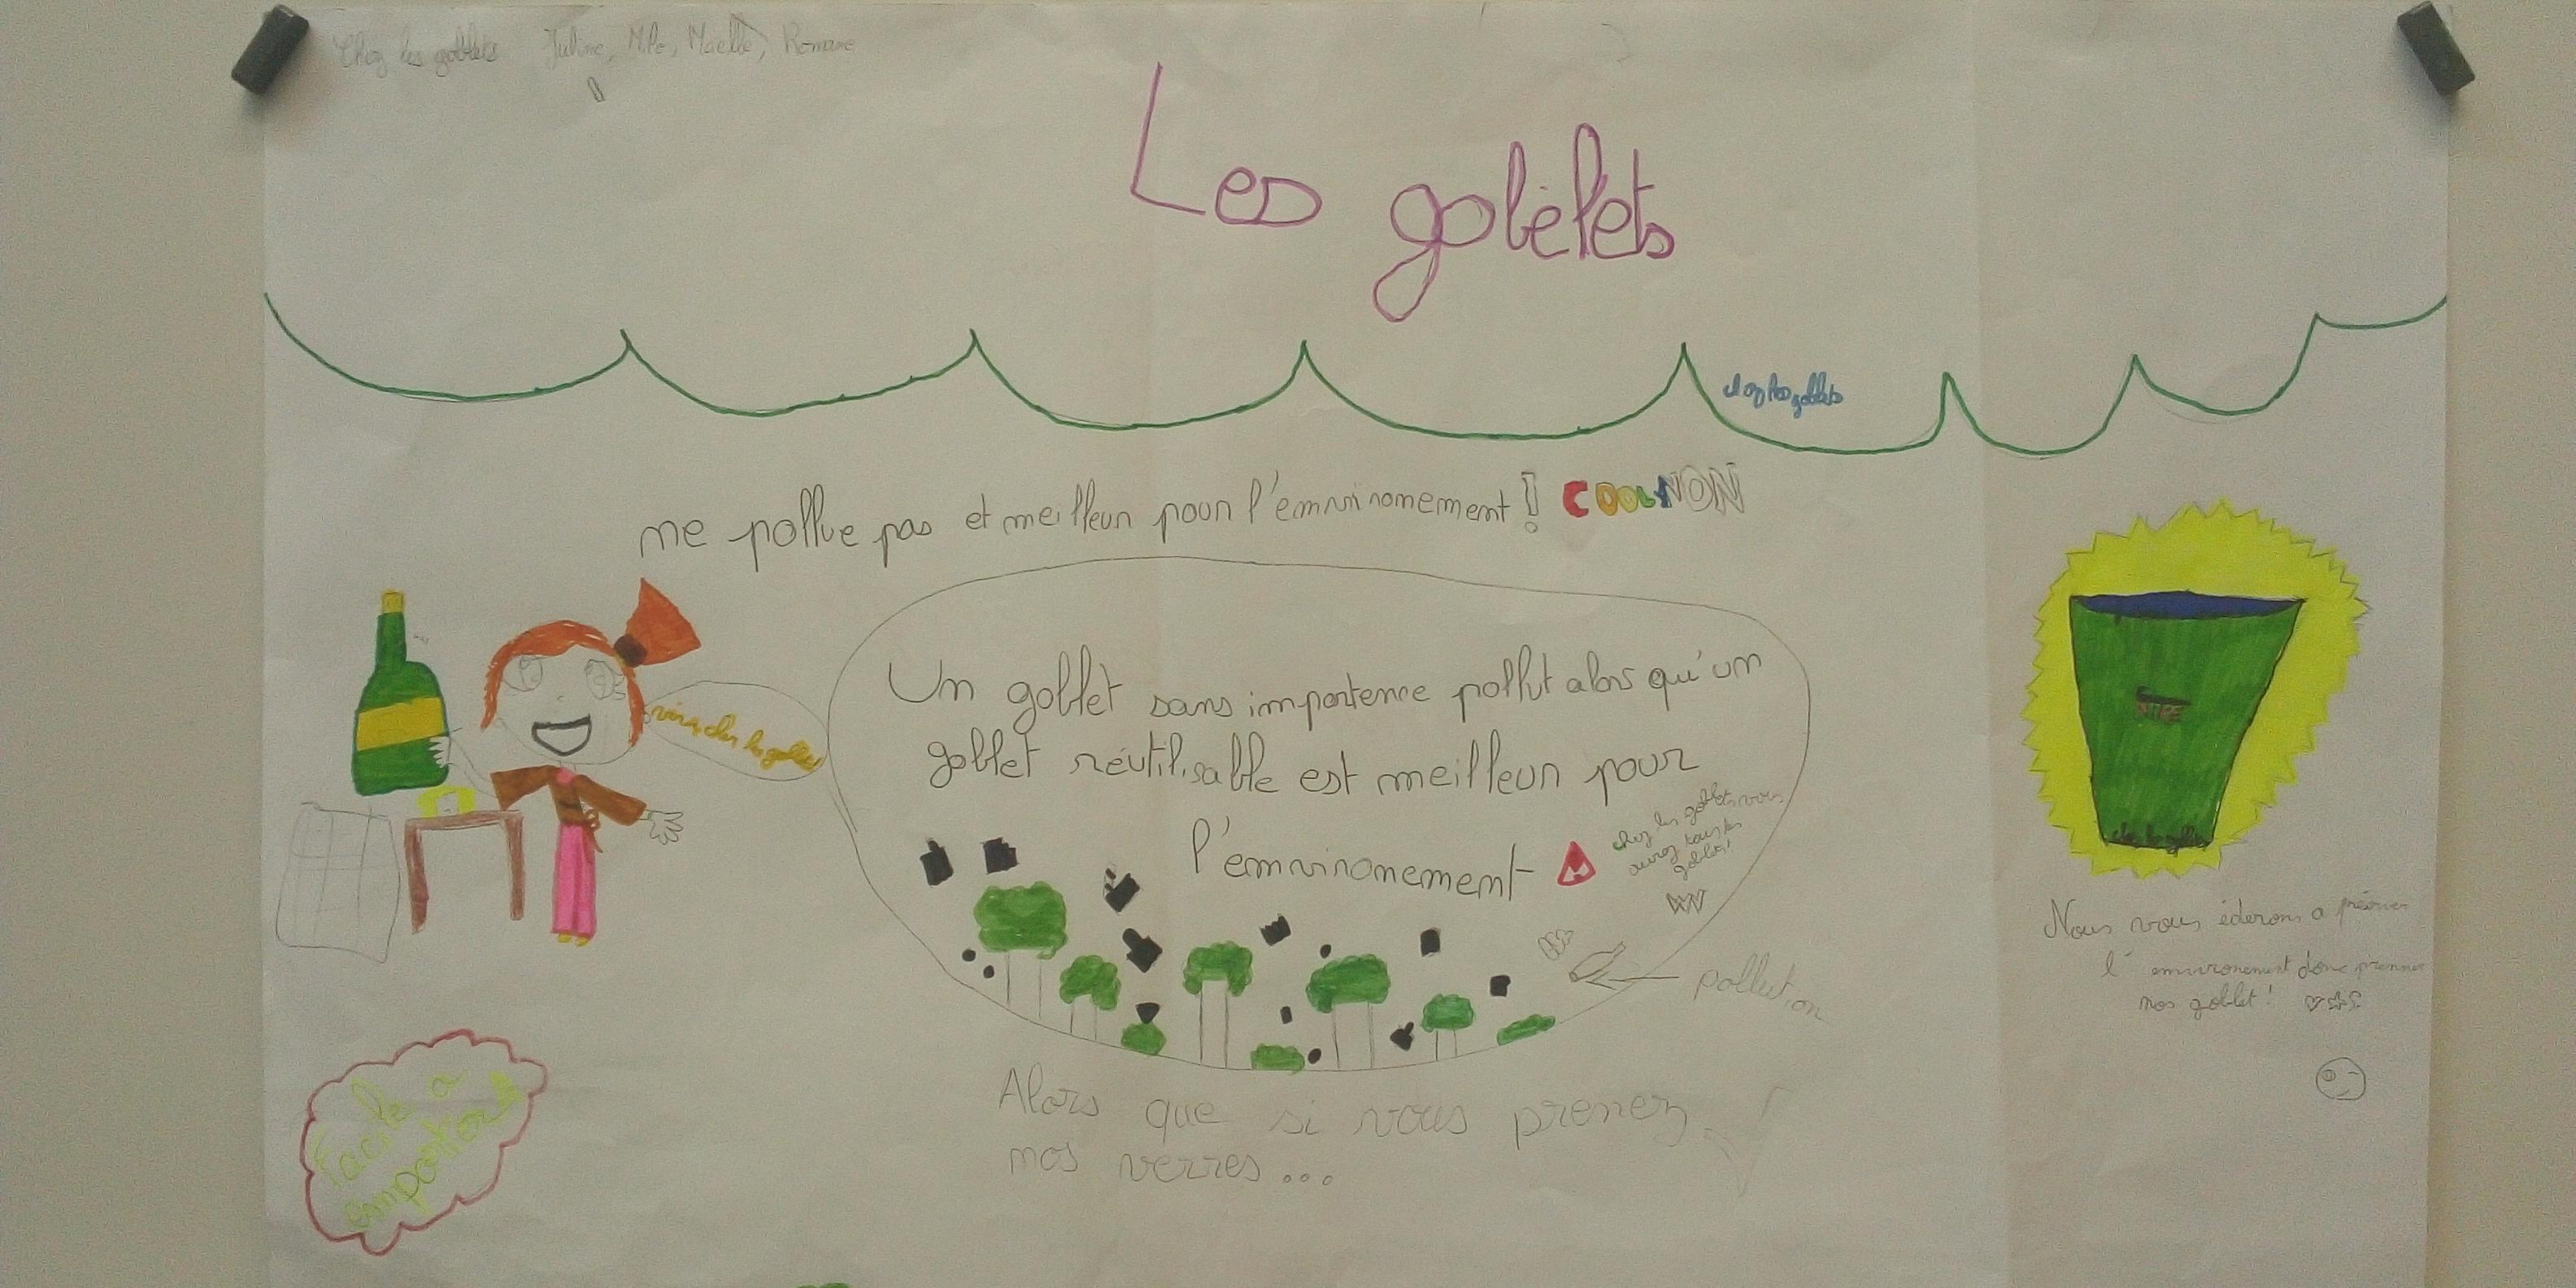 Chez les goblets Juline, Mlle, Maelle, Romane
Les gobelets
chez les goblets
ne pollue pas et meilleur pour l'environnement! COOL NON
viens chez les goblets
Un goblet sans importence pollut alors qu'un
goblet réutilisable est meilleur pour
l'environnement
chez les goblets vous
aurez tous les
goblets!
pollution
Nous vous éderons a préserver
l'environement donc prenner
nos goblet!
chez les goblets
Facile a
emporter
Alors que si vous prenez
nos verres...